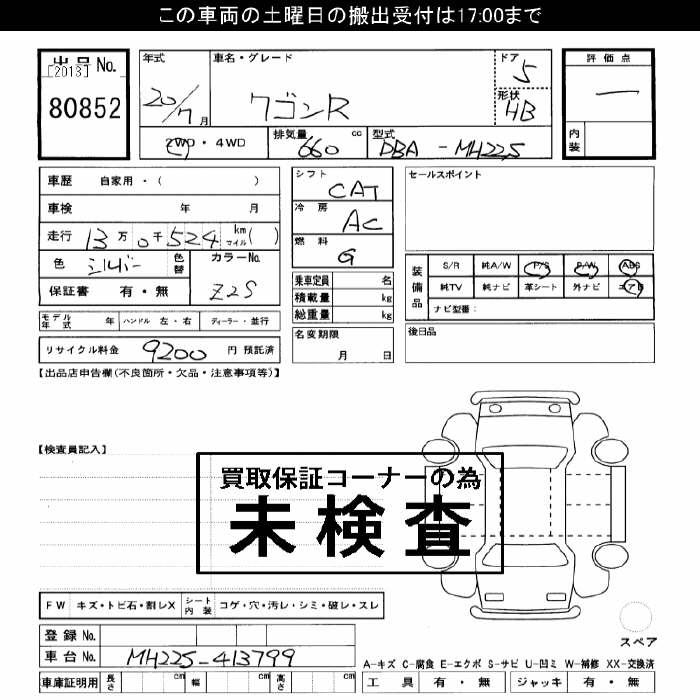 この車両の土曜日の搬出受付は17:00まで
出品 No.
[2013]
80852
年式
20/7 月
車名・グレード
ワゴンR
ドア
5
形状
HB
評価点
一
内装
2WD・4WD
排気量 cc
660
型式
DBA - MH22S
車歴 自家用・( )
車検 年 月
走行 13万0千524 km マイル( )
色 シルバー 色替
カラーNo.
Z2S
保証書 有・無
シフト
CAT
冷房
AC
燃料
G
乗車定員 名
積載量 kg
総重量 kg
セールスポイント
装備品
S/R 純A/W P/S P/W ABS
純TV 純ナビ 革シート 外ナビ エアB
ナビ型番:
モデル年式 年 ハンドル 左・右 ディーラー・並行
リサイクル料金 9200 円 預託済
名変期限
月 日
後日品
【出品店申告欄(不良箇所・欠品・注意事項等)】
【検査員記入】
買取保証コーナーの為
未検査
FW キズ・トビ石・割レX シート内装 コゲ・穴・汚レ・シミ・破レ・スレ
登録 No.
車台 No. MH22S-413799
車庫証明用 長さ cm 幅 cm 高さ cm
スペア
A-キズ C-腐食 E-エクボ S-サビ U-凹ミ W-補修 XX-交換済
工具 有・無 ジャッキ 有・無